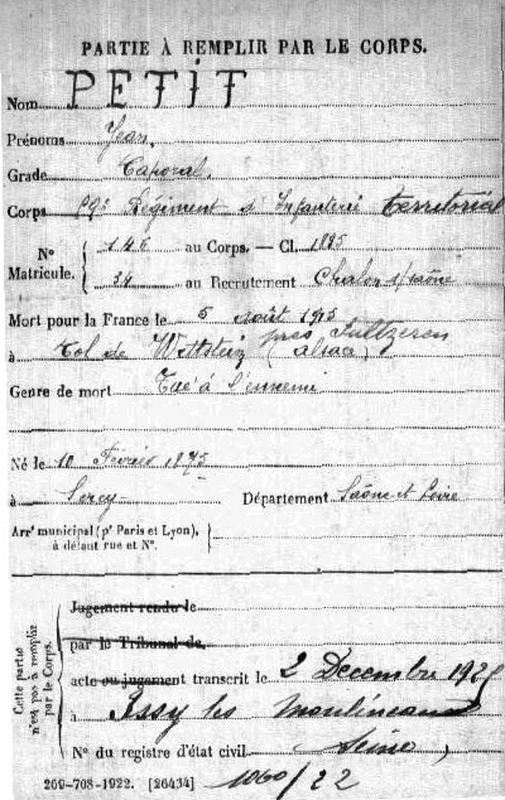 PARTIE À REMPLIR PAR LE CORPS.
Nom PETIT
Prénoms Jean,
Grade Caporal,
Corps Régiment d'Infanterie territorial
N° Matricule. 146 au Corps. — Cl. 1895
34 au Recrutement Chalon s/saône
Mort pour la France le 5 août 1915
à Col de Wettstein (près Sultzeren Alsace)
Genre de mort Tué à l'ennemi
Né le 10 Février 1875
à Sercy Département Saône et Loire
Arrt municipal (pr Paris et Lyon),
à défaut rue et N°.
Cette partie
n'est pas à remplir
par le Corps.
Jugement rendu le
par le Tribunal de
acte ou jugement transcrit le 2 Decembre
à Issy les Moulineaux
N° du registre d'état civil Seine
269-708-1922. [26434] 1060/22